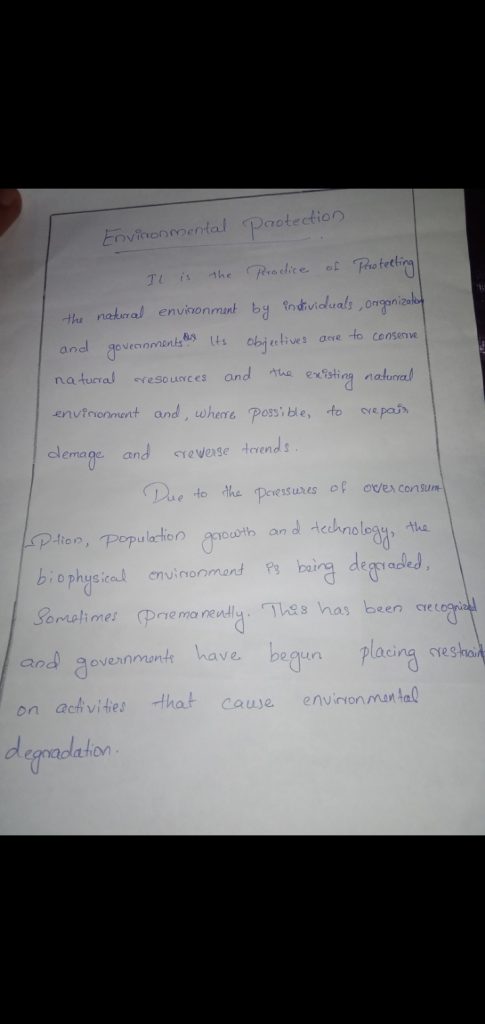 Environmental Protection
It is the Practice of Protecting
the natural environment by individuals, organization
and governments. Its objectives are to conserve
natural resources and the existing natural
environment and, where possible, to repair
demage and reverse trends.
Due to the pressures of overconsum
ption, population growth and technology, the
biophysical environment is being degraded,
Sometimes premanently. This has been recognized
and governments have begun placing restraint
on activities that cause environmental
degradation.